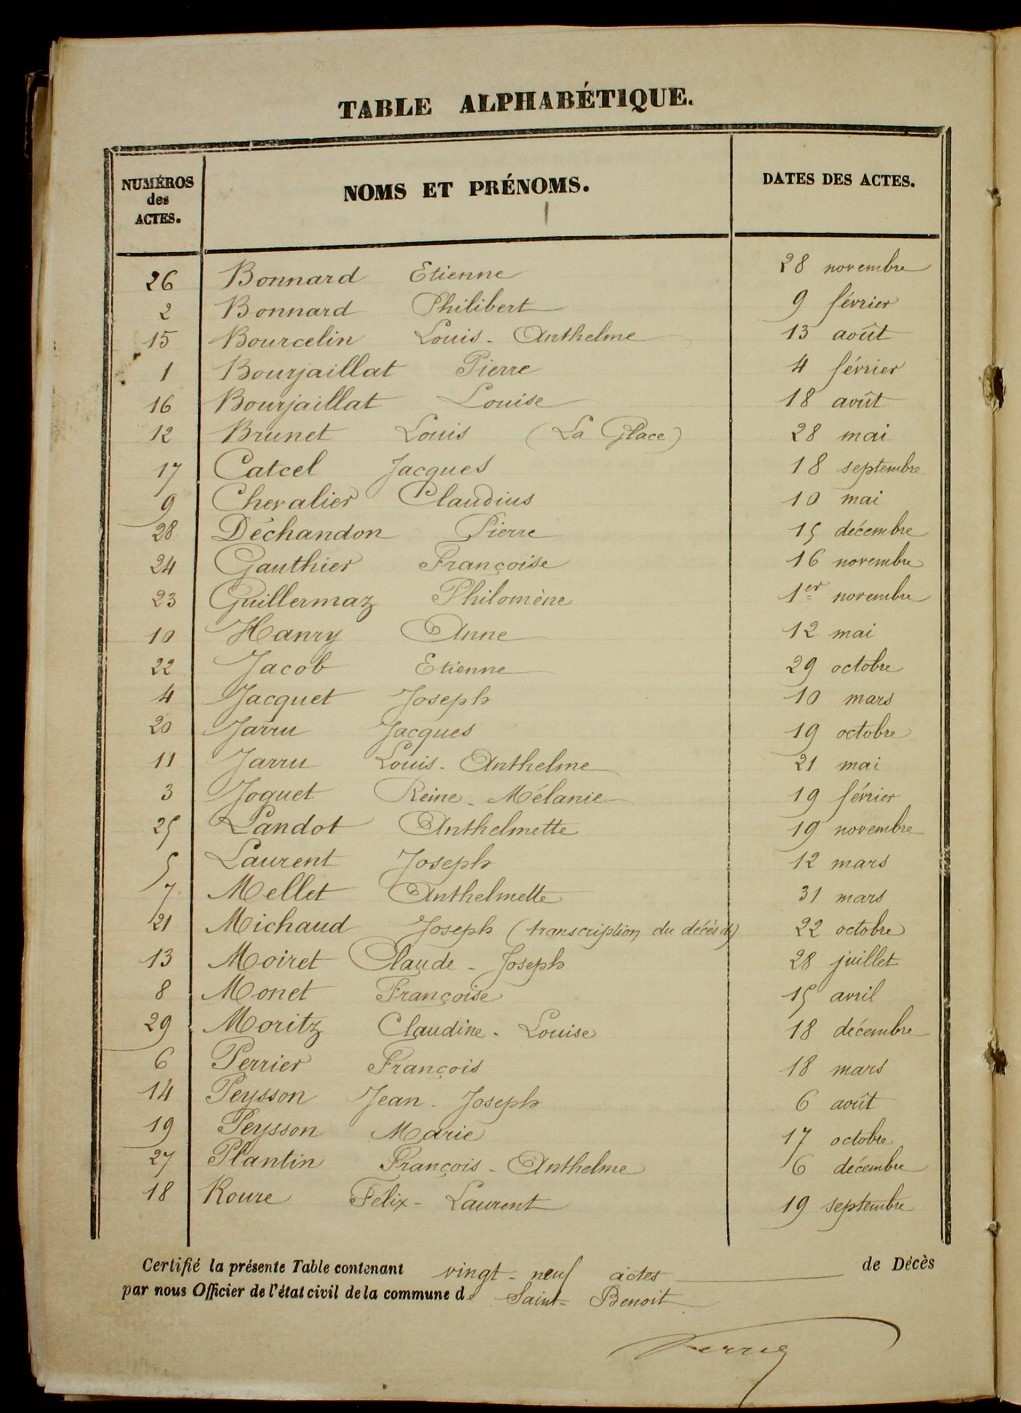 TABLE ALPHABÉTIQUE.
NUMÉROS des ACTES. NOMS ET PRÉNOMS. DATES DES ACTES.
26 Bonnard Etienne 28 novembre
2 Bonnard Philibert 9 février
15 Bourcelin Louis - Anthelme 13 août
1 Bourjaillat Pierre 4 février
16 Bourjaillat Louise 18 août
12 Brunet Louis (La Place) 28 mai
17 Catcel Jacques 18 septembre
9 Chevalier Claudius 10 mai
28 Déchandon Pierre 15 décembre
24 Gauthier Françoise 16 novembre
23 Guillermaz Philomène 1er novembre
10 Hanry Anne 12 mai
22 Jacob Etienne 29 octobre
4 Jacquet Joseph 10 mars
20 Jarru Jacques 19 octobre
11 Jarru Louis - Anthelme 21 mai
3 Joguet Reine - Mélanie 19 février
25 Landot Anthelmette 19 novembre
5 Laurent Joseph 12 mars
7 Mellet Anthelmette 31 mars
21 Michaud Joseph (transcription du décès d) 22 octobre
13 Moiret Claude - Joseph 28 juillet
8 Monet Françoise 15 avril
29 Moritz Claudine - Louise 18 décembre
6 Perrier François 18 mars
14 Peysson Jean - Joseph 6 août
19 Peysson Marie 17 octobre
27 Plantin François - Anthelme 6 décembre
18 Roure Félix - Laurent 19 septembre
Certifié la présente Table contenant vingt - neuf actes de Décès
par nous Officier de l'état civil de la commune de Saint - Benoit